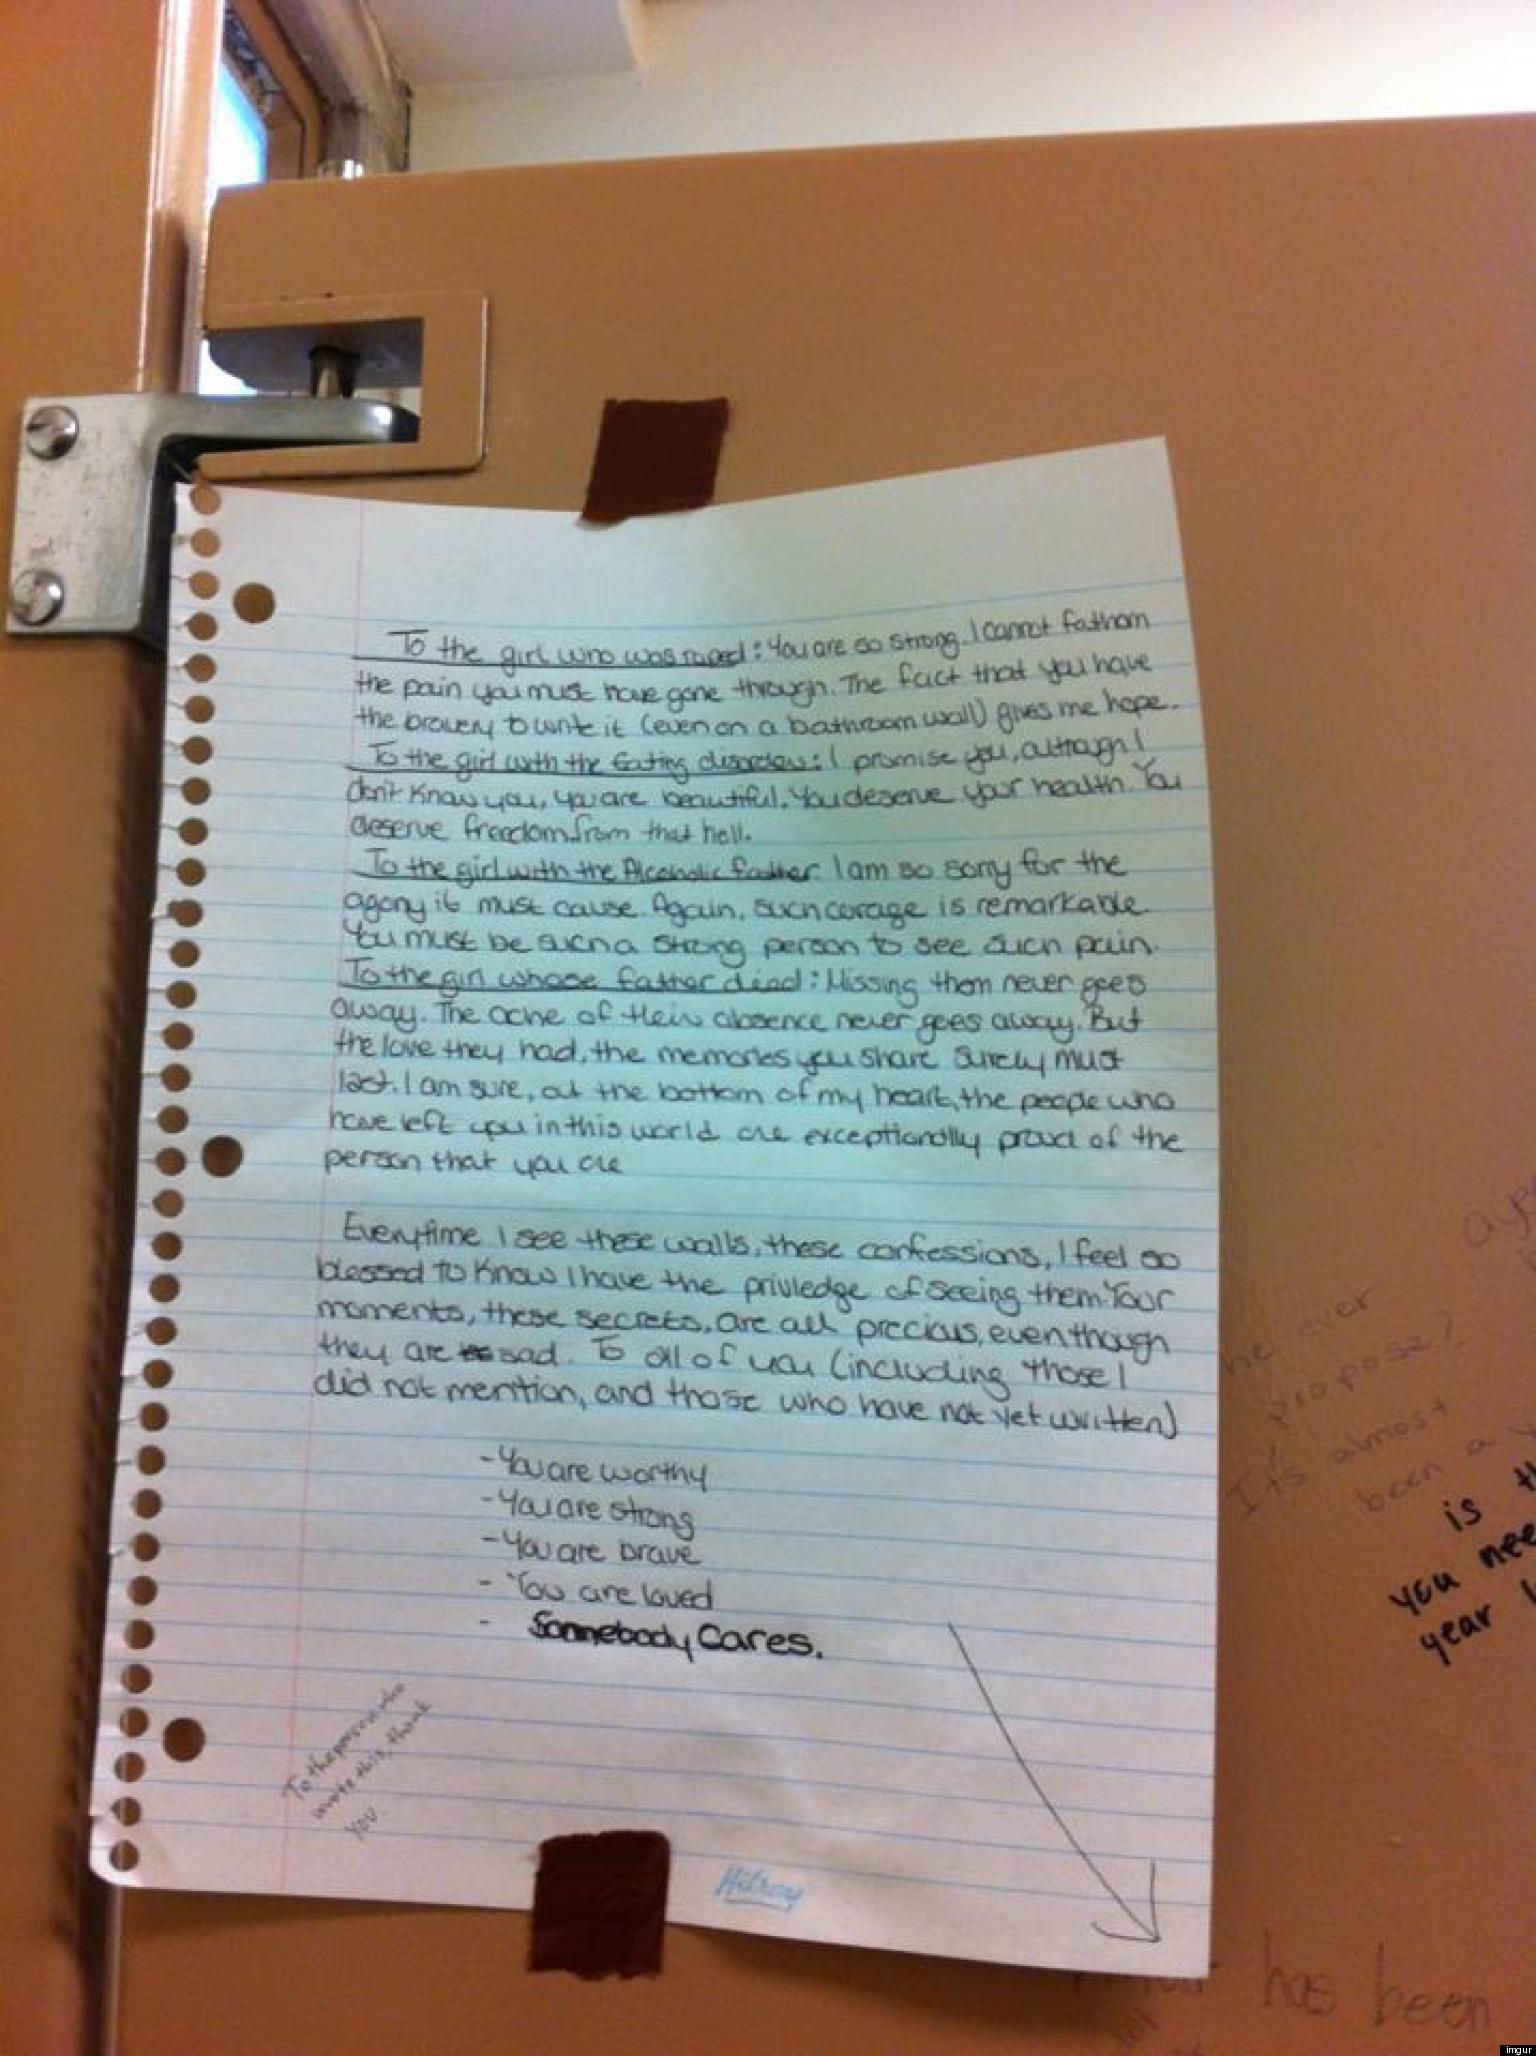 To the girl who was raped: You are so strong. I cannot fathom
the pain you must have gone through. The fact that you have
the bravery to write it (even on a bathroom wall) gives me hope.
To the girl with the Eating disorder: I promise you, although I
don't know you, you are beautiful. You deserve your health. You
deserve freedom from that hell.
To the girl with the Alcoholic father I am so sorry for the
agony it must cause. Again, such corage is remarkable.
You must be such a strong person to see such pain.
To the girl whose father died: Missing them never goes
away. The ache of their absence never goes away. But
the love they had, the memories you share surely must
last. I am sure, at the bottom of my heart, the people who
have left you in this world are exceptionally proud of the
person that you are
Everytime I see these walls, these confessions, I feel so
blessed to know I have the priviledge of seeing them. Your
moments, these secrets, are all precious, even though
they are sad. To all of you (including those I
did not mention, and those who have not yet written)
- You are worthy
- You are strong
- You are brave
- You are loved
- Somebody Cares.
To the person who
wrote this, thank
you
Hilroy
he ever
propose?
It's almost
been a y
is th
you nee
year
has been
imgur